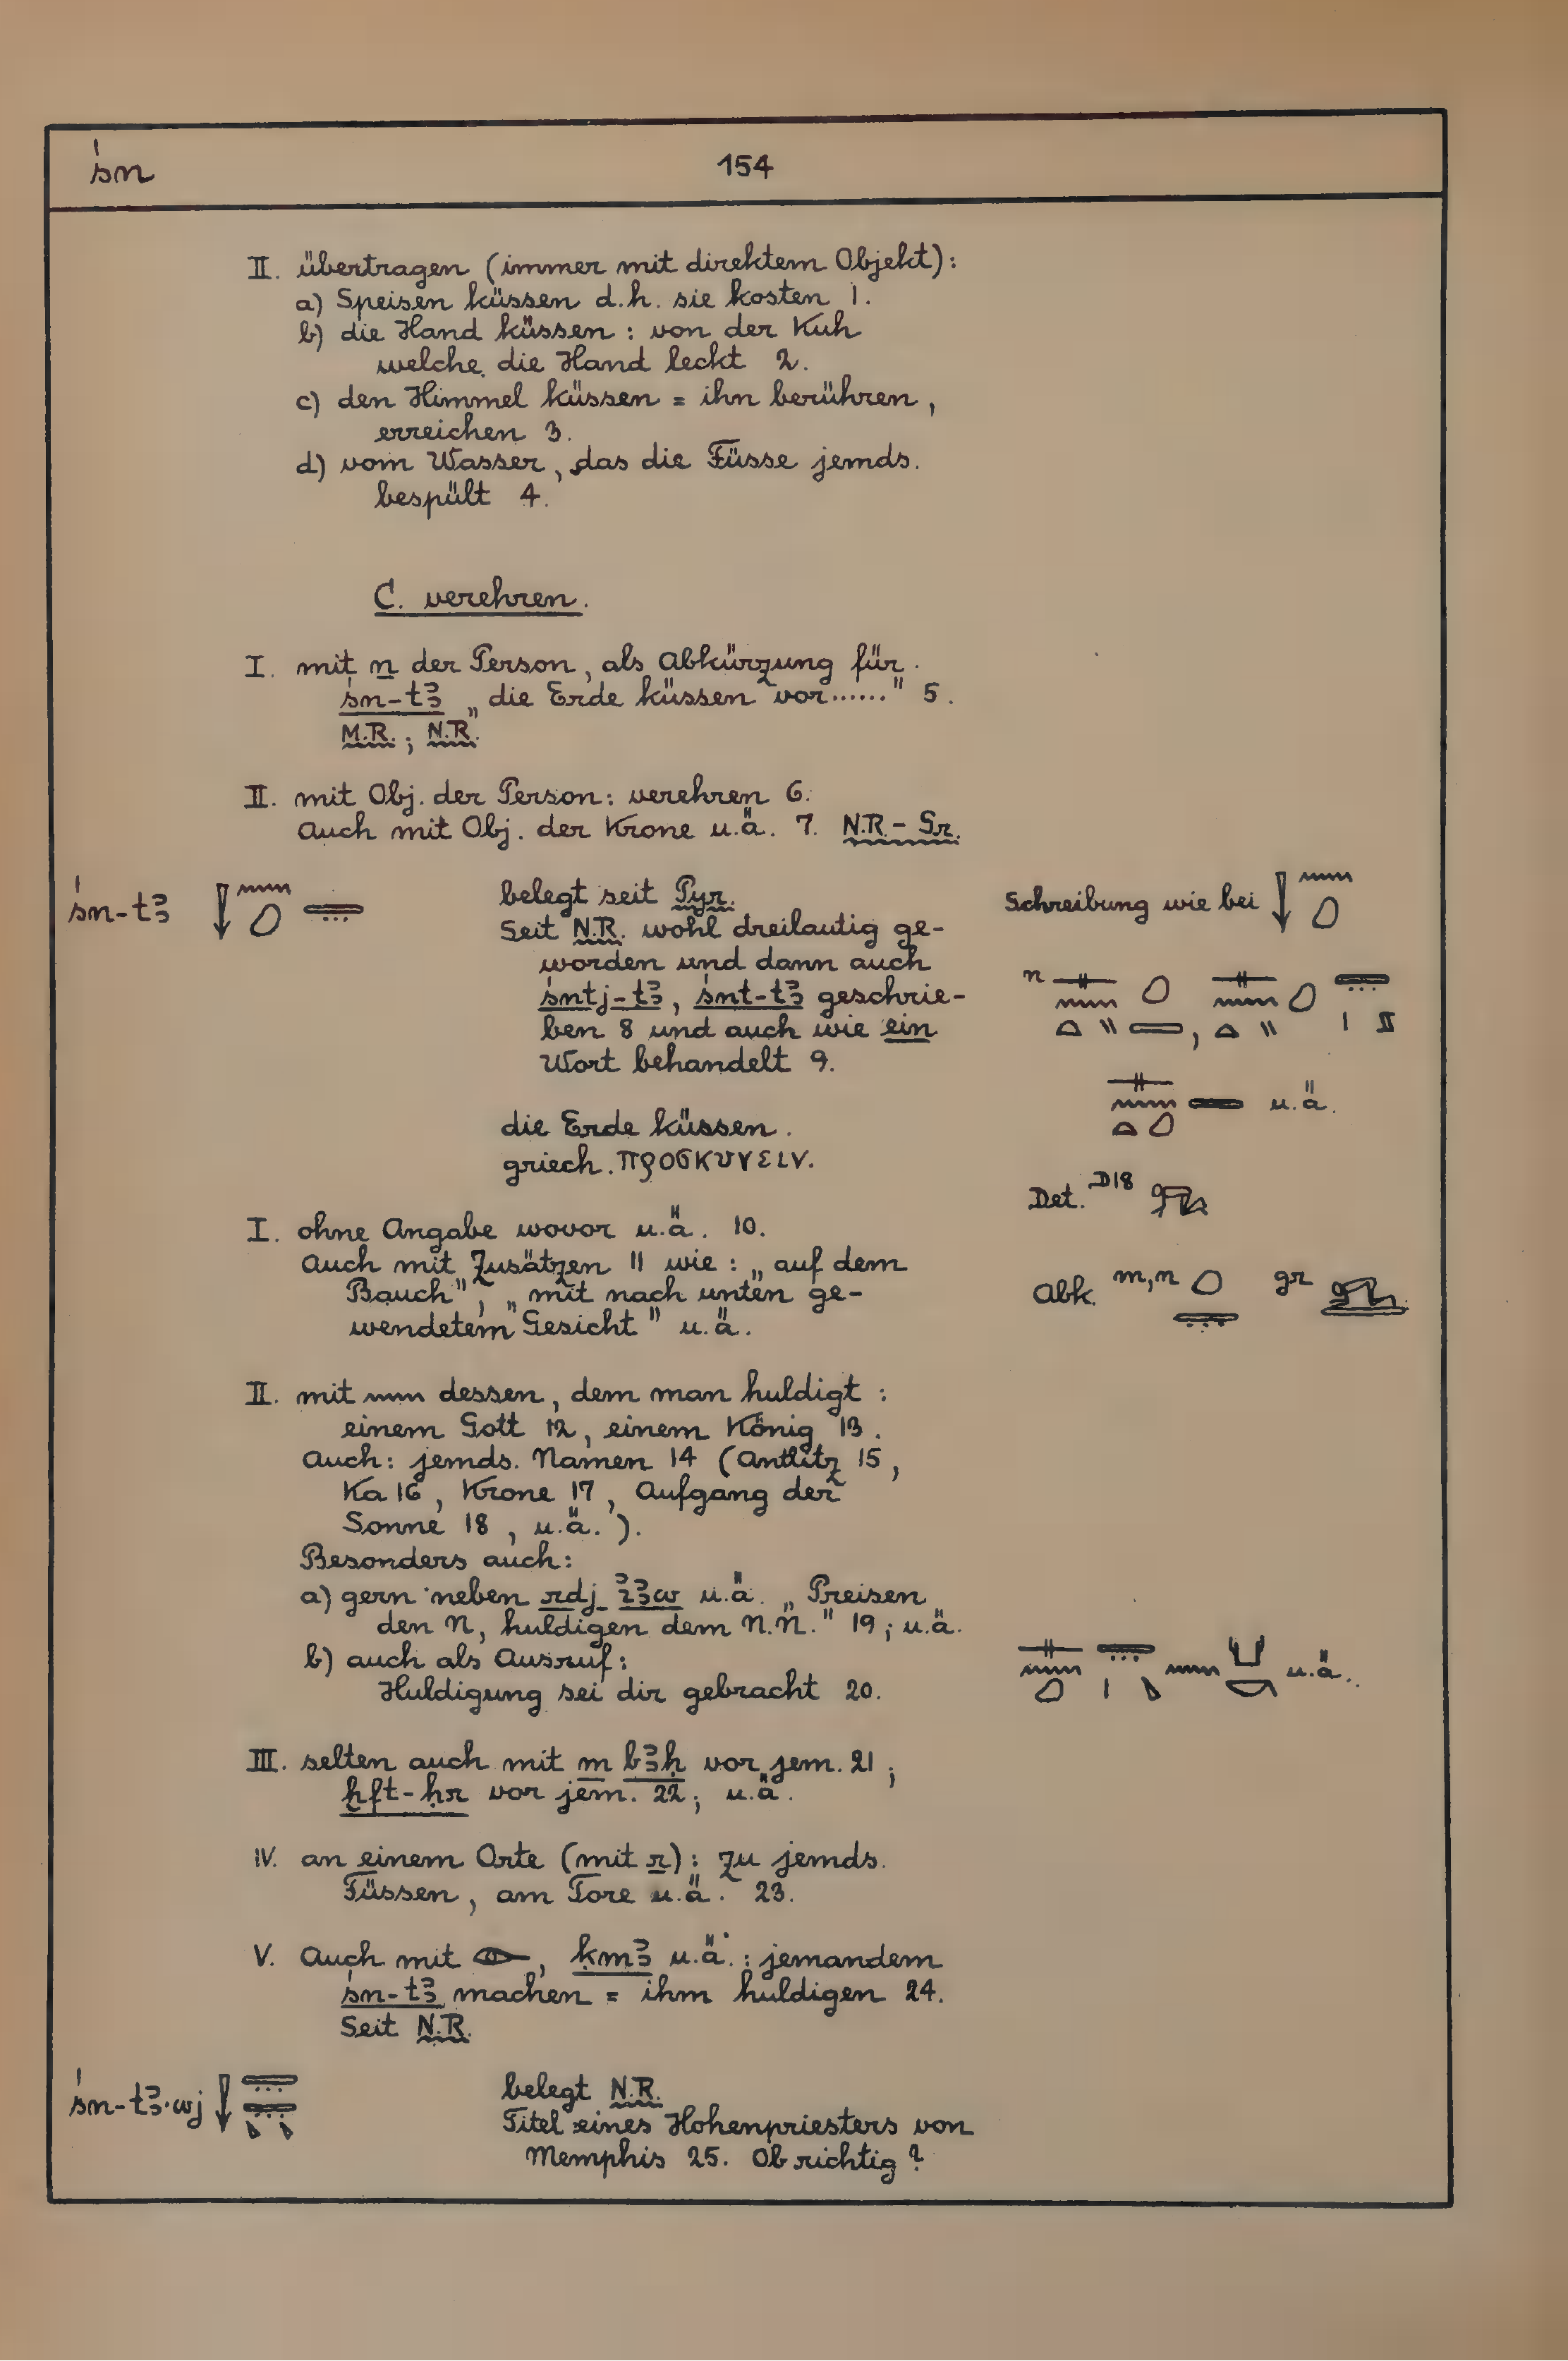 śn
154
II. übertragen (immer mit direktem Objekt):
a) Speisen küssen d.h. sie kosten 1.
b) die Hand küssen : von der Kuh
welche die Hand leckt 2.
c) den Himmel küssen = ihn berühren,
erreichen 3.
d) vom Wasser, das die Füsse jemds.
bespült 4.
C. verehren.
I. mit n der Person, als Abkürzung für
śn-tꜣ „die Erde küssen vor......" 5.
M.R.; N.R.
II. mit Obj. der Person: verehren 6.
Auch mit Obj. der Krone u.ä. 7. N.R.- Gr.
śn-tꜣ
belegt seit Pyr.
Seit N.R. wohl dreilautig ge-
worden und dann auch
śntj-tꜣ, śnt-tꜣ geschrie-
ben 8 und auch wie ein
Wort behandelt 9.
Schreibung wie bei
n
u.ä.
die Erde küssen.
griech. προσκυνειν.
Det. D18
I. ohne Angabe wovor u.ä. 10.
Auch mit Zusätzen 11 wie: „auf dem
Bauch", „mit nach unten ge-
wendetem Gesicht" u.ä.
Abk. m,n gr
II. mit 𓈖 dessen, dem man huldigt :
einem Gott 12, einem König 13.
Auch: jemds. Namen 14 (Antlitz 15,
Ka 16, Krone 17, Aufgang der
Sonne 18, u.ä.).
Besonders auch:
a) gern neben rdj iꜣw u.ä. „Preisen
den N, huldigen dem N.N." 19; u.ä.
b) auch als Ausruf:
Huldigung sei dir gebracht 20.
u.ä.
III. selten auch mit m bꜣḥ vor jem. 21;
ḫft-ḥr vor jem. 22; u.ä.
IV. an einem Orte (mit r): zu jemds.
Füssen, am Tore u.ä. 23.
V. Auch mit 𓁹, ḳmꜣ u.ä.: jemandem
śn-tꜣ machen = ihm huldigen 24.
Seit N.R.
śn-tꜣ·wj
belegt N.R.
Titel eines Hohenpriesters von
Memphis 25. Ob richtig?